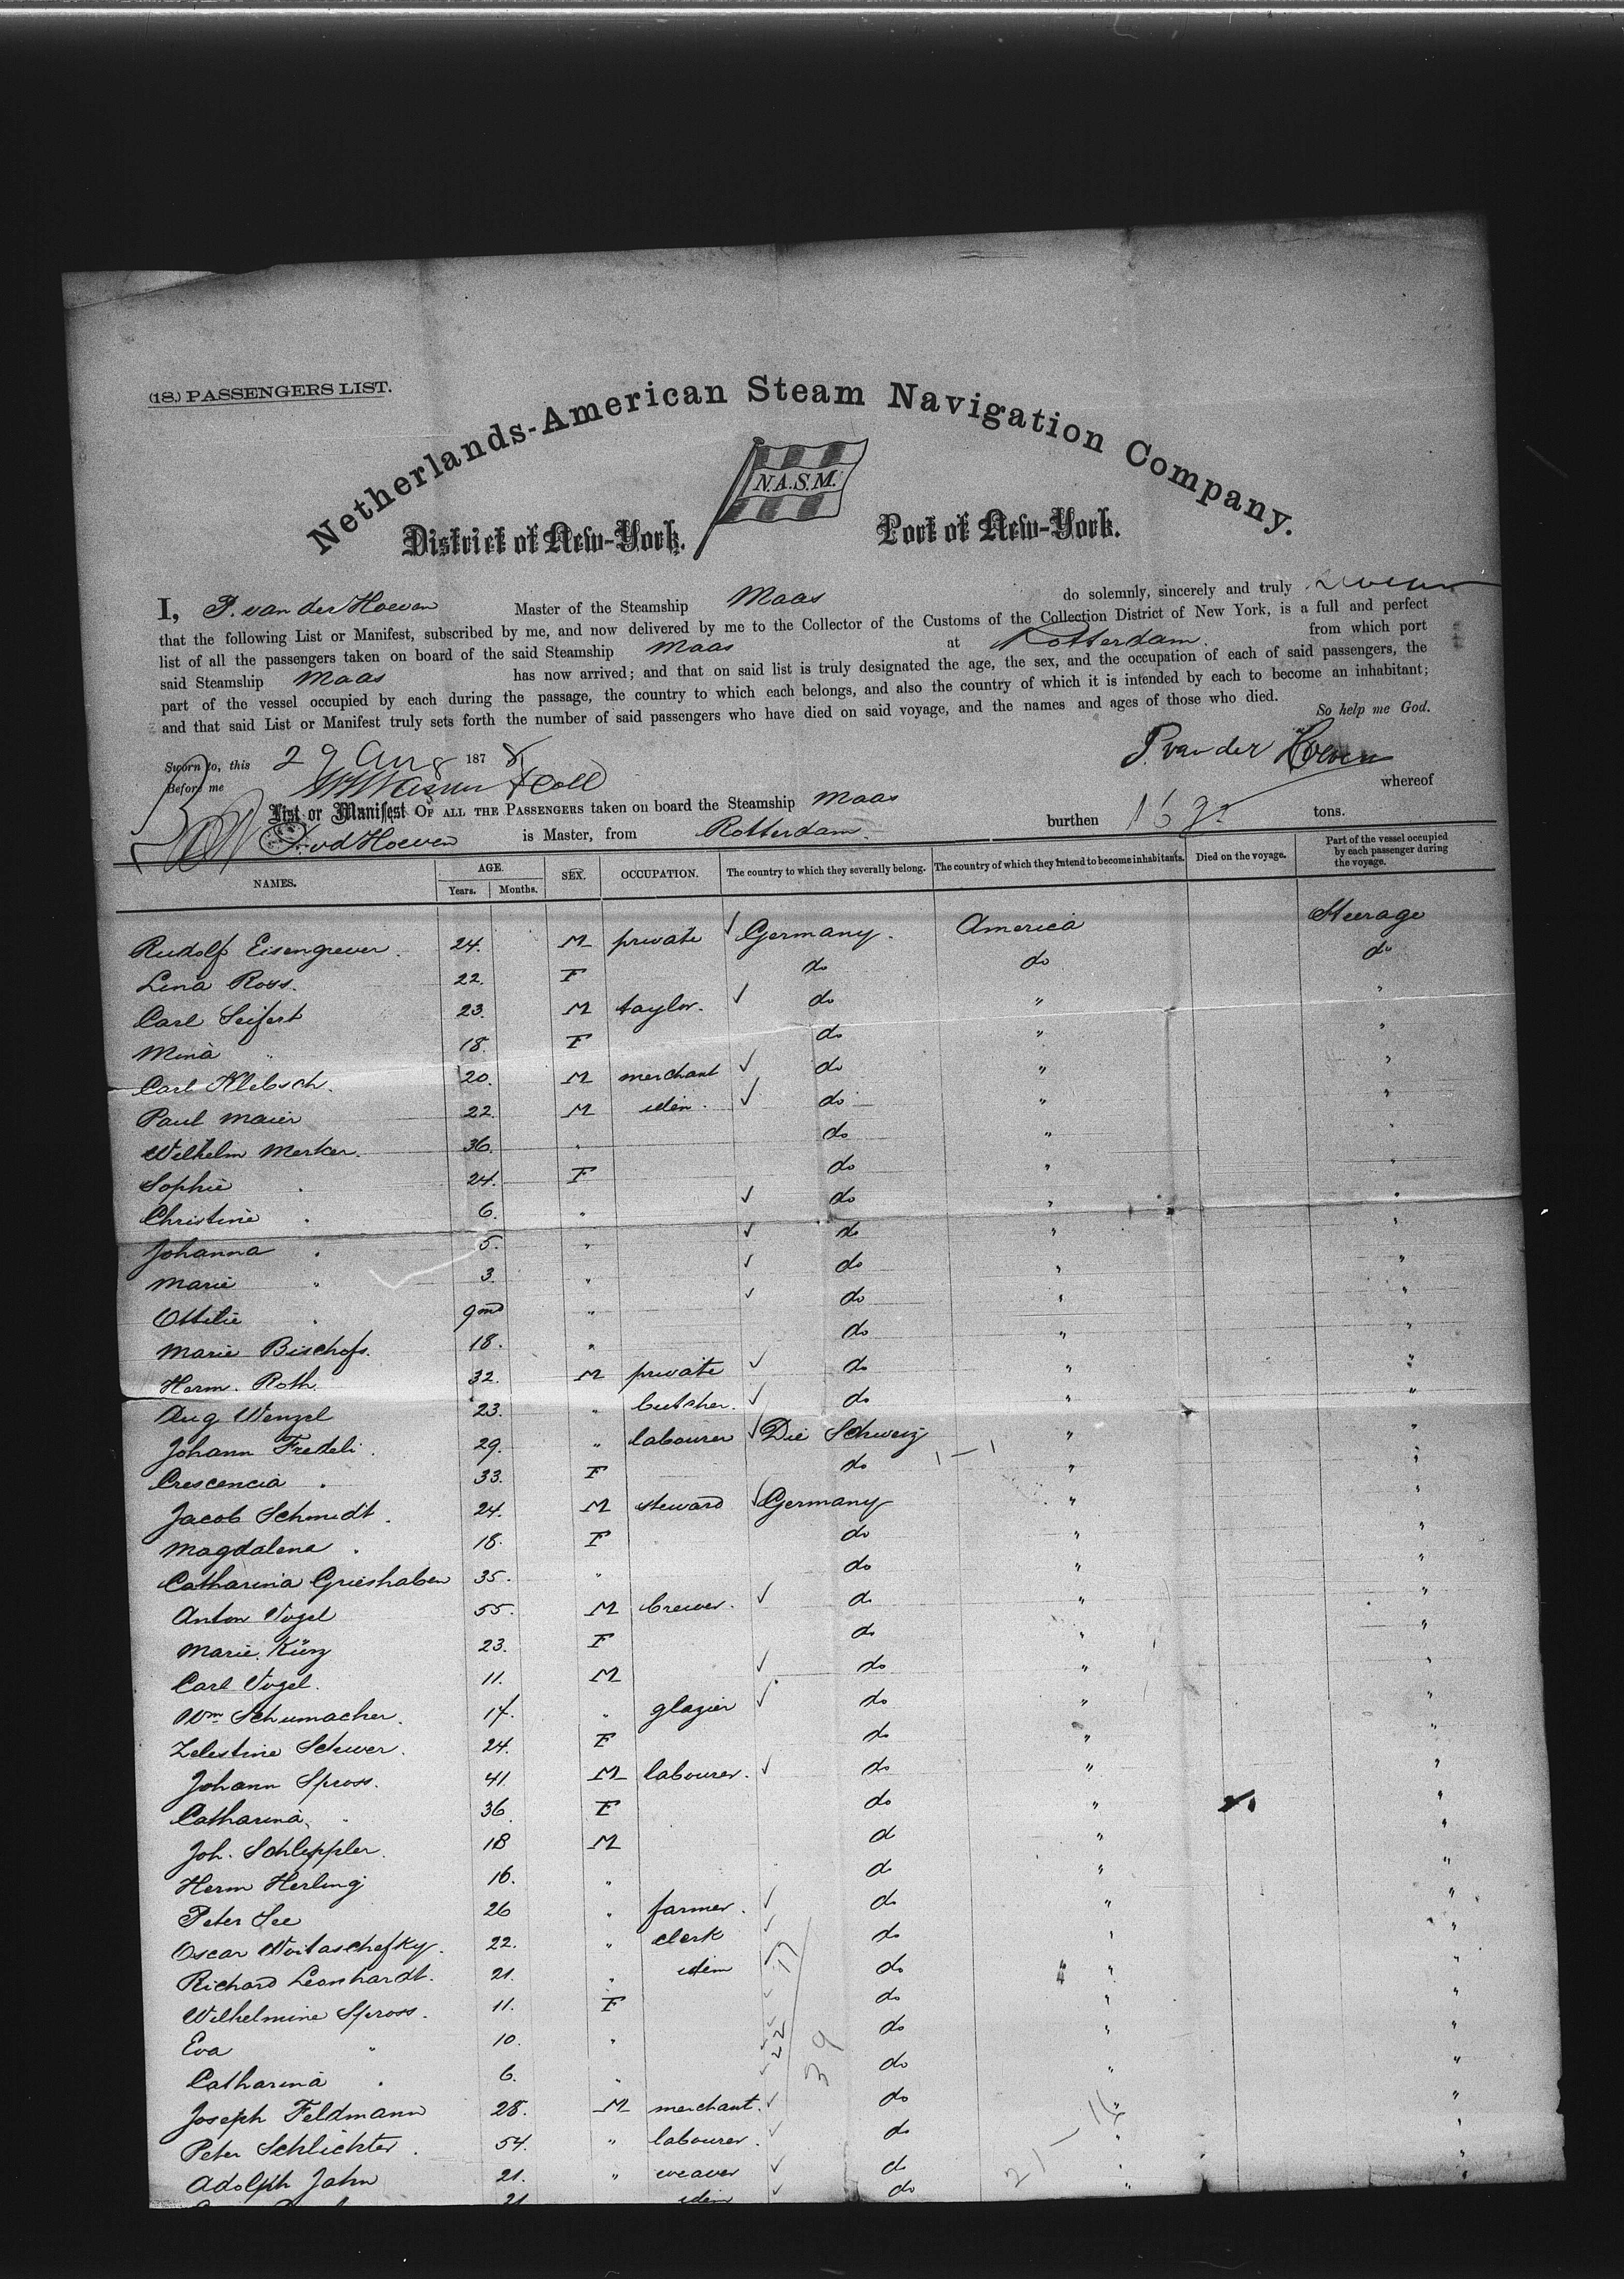 (18.) PASSENGERS LIST.
Netherlands-American Steam Navigation Company.
N.A.S.M.
District of New-York. Port of New-York.
I, P. van der Hoeven Master of the Steamship Maas do solemnly, sincerely and truly
that the following List or Manifest, subscribed by me, and now delivered by me to the Collector of the Customs of the Collection District of New York, is a full and perfect
list of all the passengers taken on board of the said Steamship Maas at Rotterdam. from which port
said Steamship Maas has now arrived; and that on said list is truly designated the age, the sex, and the occupation of each of said passengers, the
part of the vessel occupied by each during the passage, the country to which each belongs, and also the country of which it is intended by each to become an inhabitant;
and that said List or Manifest truly sets forth the number of said passengers who have died on said voyage, and the names and ages of those who died. So help me God.
Sworn to, this 29 Aug 1878 P. van der Hoeven
Before me whereof
List or Manifest OF ALL THE PASSENGERS taken on board the Steamship Maas
P. vd Hoeven is Master, from Rotterdam. burthen tons.
NAMES. AGE. Years. Months. SEX. OCCUPATION. The country to which they severally belong. The country of which they intend to become inhabitants. Died on the voyage. Part of the vessel occupied by each passenger during the voyage.
Rudolf Eisengrever. 24. M private Germany. America Steerage
Lina Ross. 22. F do do do
Carl Seifert 23. M taylor. do " "
Mina " 18. F do " "
Carl Klebsch. 20. M merchant do " "
Paul Maier 22. M idem. do " "
Wilhelm Merker. 36. " do " "
Sophie " 24. F do " "
Christine " 6. " do " "
Johanna " 5. " do " "
Marie " 3. " do " "
Ottilie " 9 mo " do " "
Marie Bischofs. 18. " do " "
Herm. Roth. 32. M private do " "
Aug Wenzel 23. " butcher. do " "
Johann Fredeli. 29. " labourer Die Schweiz " "
Crescencia " 33. F do " "
Jacob Schmidt. 24. M steward Germany " "
Magdalena " 18. F do " "
Catharina Grieshaben 35. " do " "
Anton Vogel 55. M brewer. do " "
Marie Kürz 23. F do " "
Carl Vogel. 11. M do " "
Wm Schumacher. 17. " glazier do " "
Zelestine Schwer. 24. F do " "
Johann Spross. 41. M labourer. do " "
Catharina " 36 F do " "
Joh. Schleppler. 18 M do " "
Herm Herling 16. " do " "
Peter See 26 " farmer. do " "
Oscar Woitaschefky. 22. " clerk do " "
Richard Leonhardt. 21. " idem do " "
Wilhelmine Spross. 11. F do " "
Eva " 10. " do " "
Catharina " 6. " do " "
Joseph Feldmann 28. M merchant. do " "
Peter Schlichter. 54. " labourer. do " "
Adolph Jahn 21. " weaver do " "
21 idem do " "